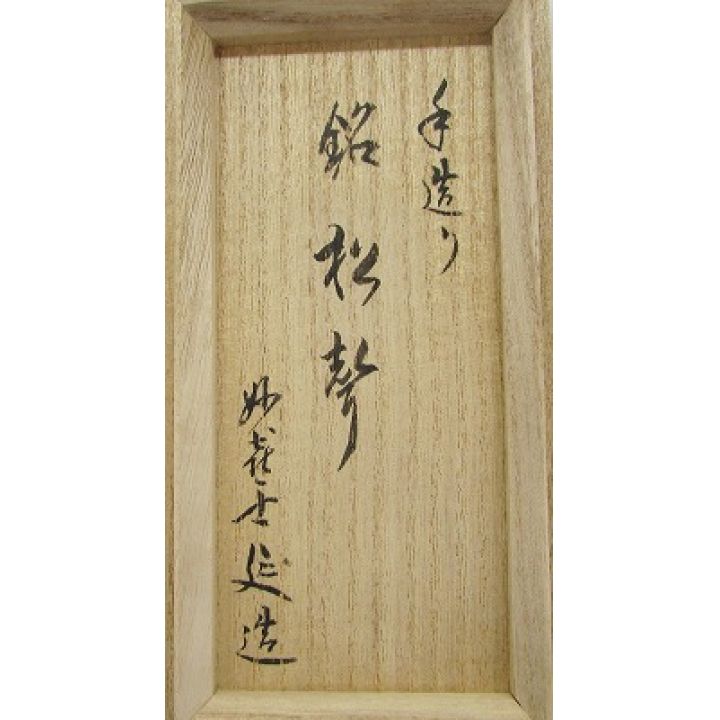 手造り
銘 松聲
妙喜庵 造